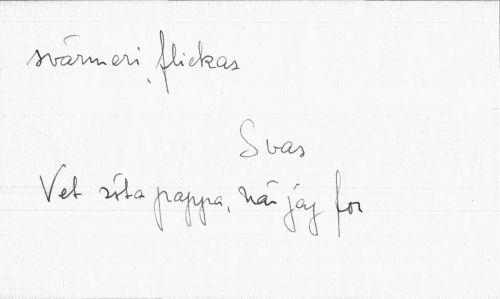 svärmeri, flickas
Svas
Vet pappa, när jag for